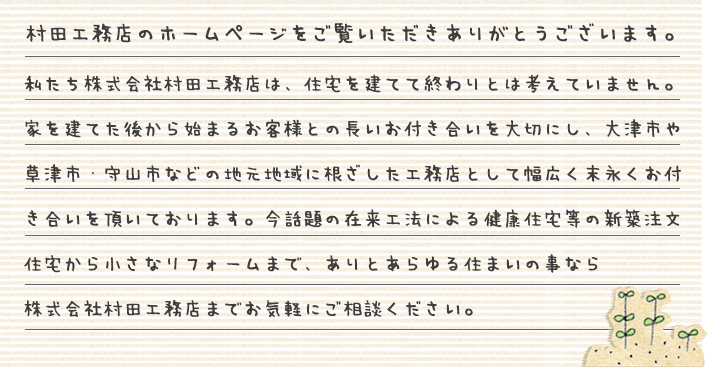 村田工務店のホームページをご覧いただきありがとうございます。
私たち株式会社村田工務店は、住宅を建てて終わりとは考えていません。
家を建てた後から始まるお客様との長いお付き合いを大切にし、大津市や
草津市・守山市などの地元地域に根ざした工務店として幅広く末永くお付
き合いを頂いております。今話題の在来工法による健康住宅等の新築注文
住宅から小さなリフォームまで、ありとあらゆる住まいの事なら
株式会社村田工務店までお気軽にご相談ください。